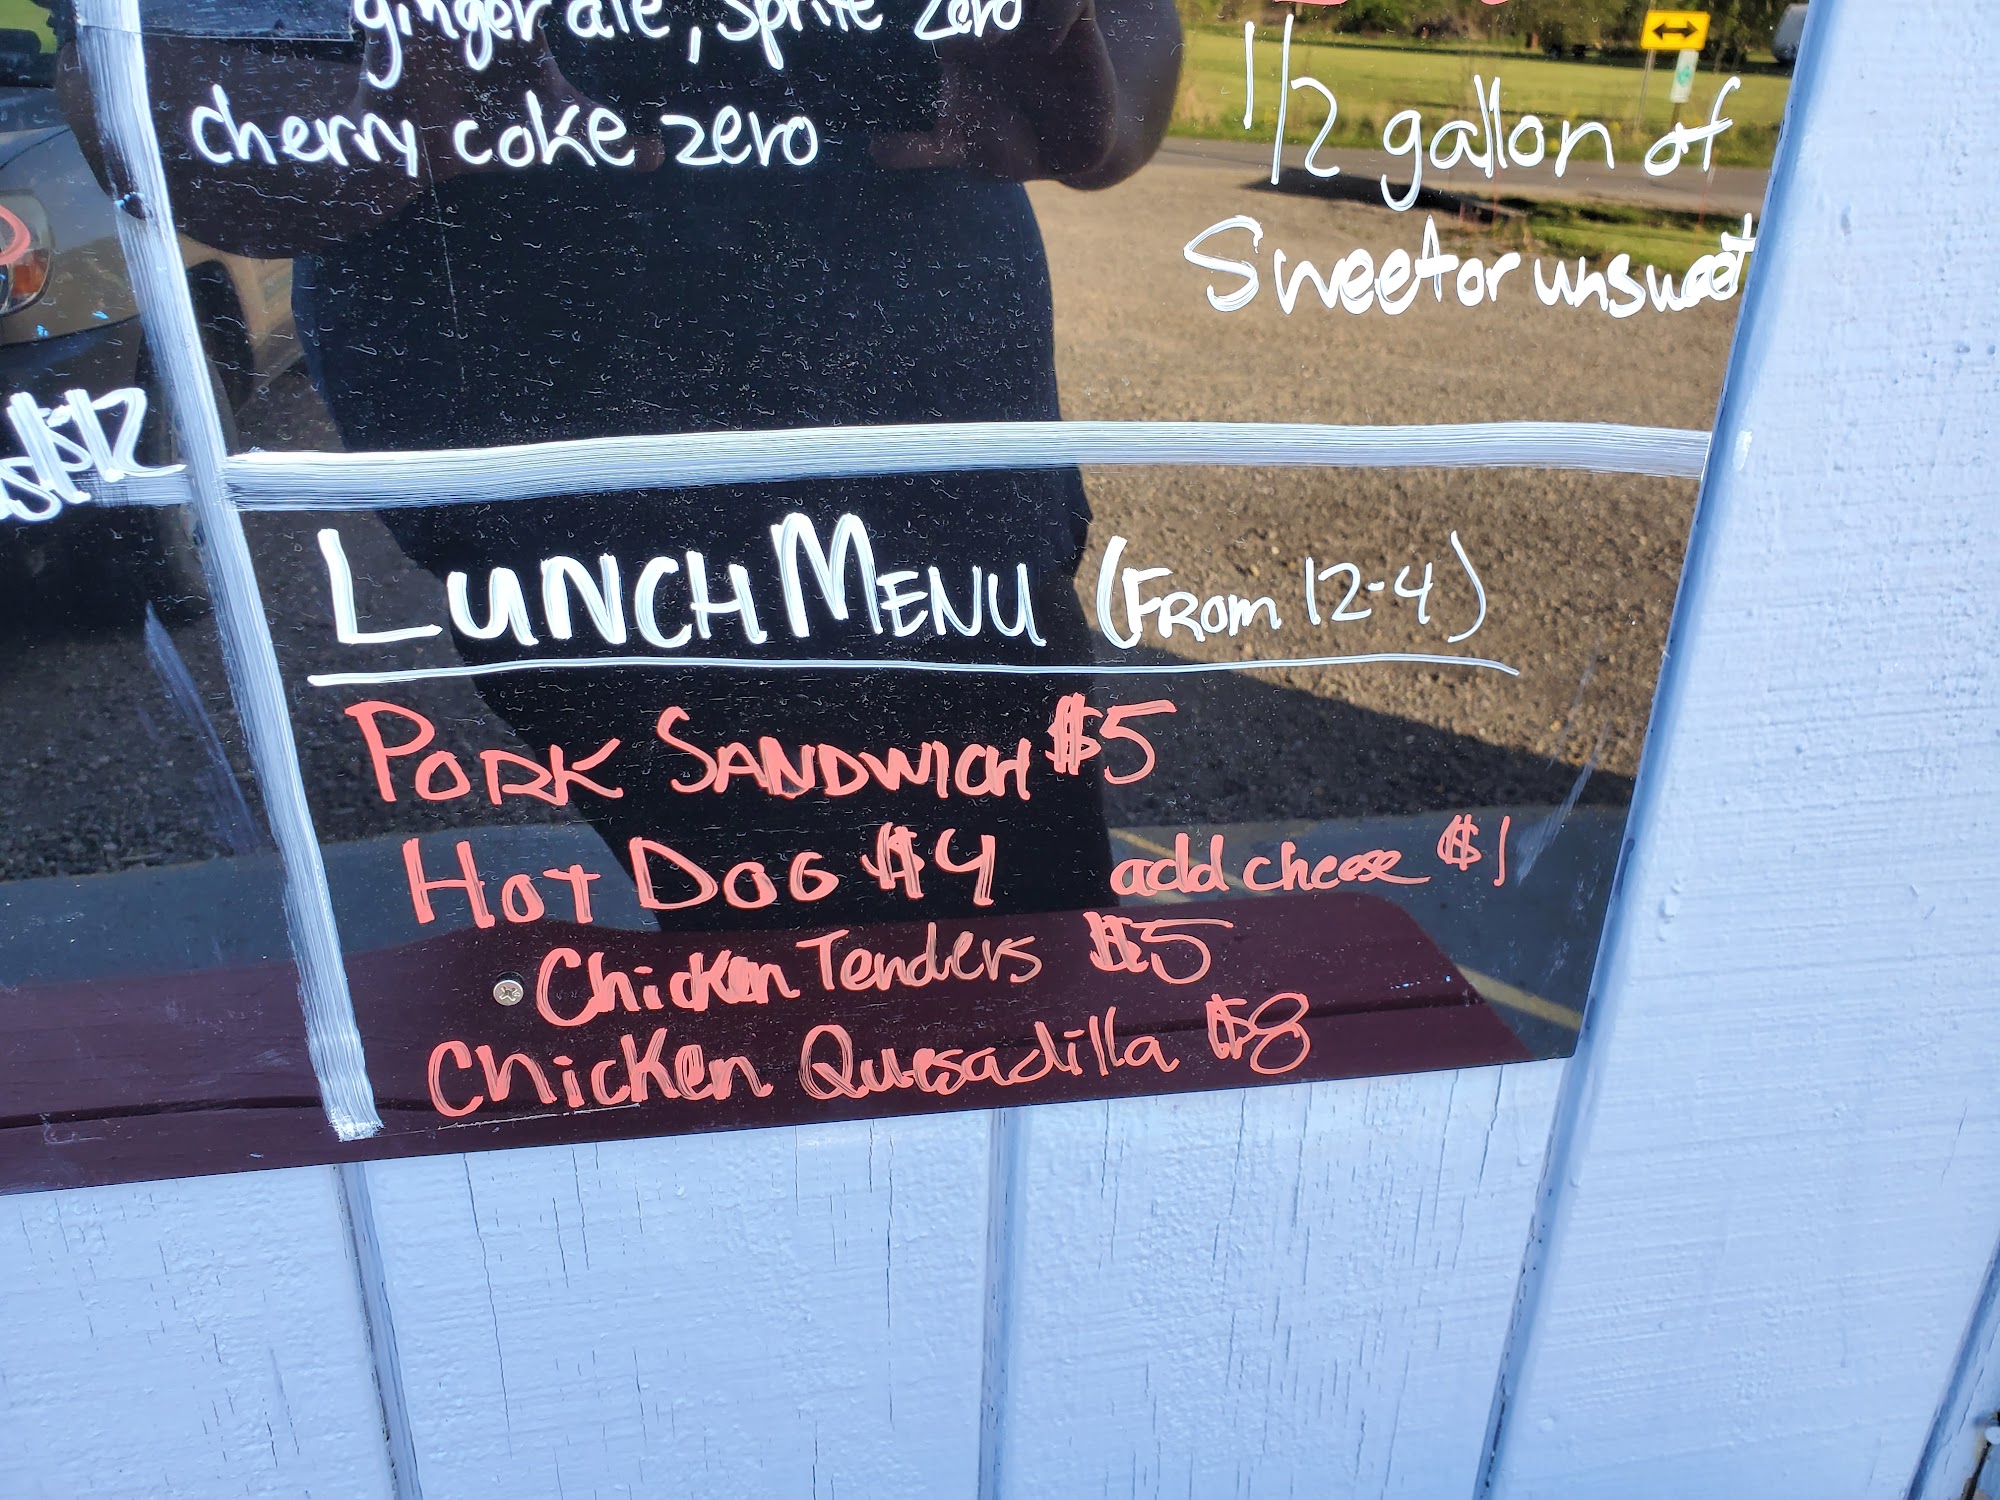 ginger ale, sprite zero
cherry coke zero
1/2 gallon of
Sweet or unsweet
$12
LUNCH MENU (FROM 12-4)
PORK SANDWICH $5
HOT DOG $4 add cheese $1
Chicken Tenders $5
Chicken Quesadilla $8